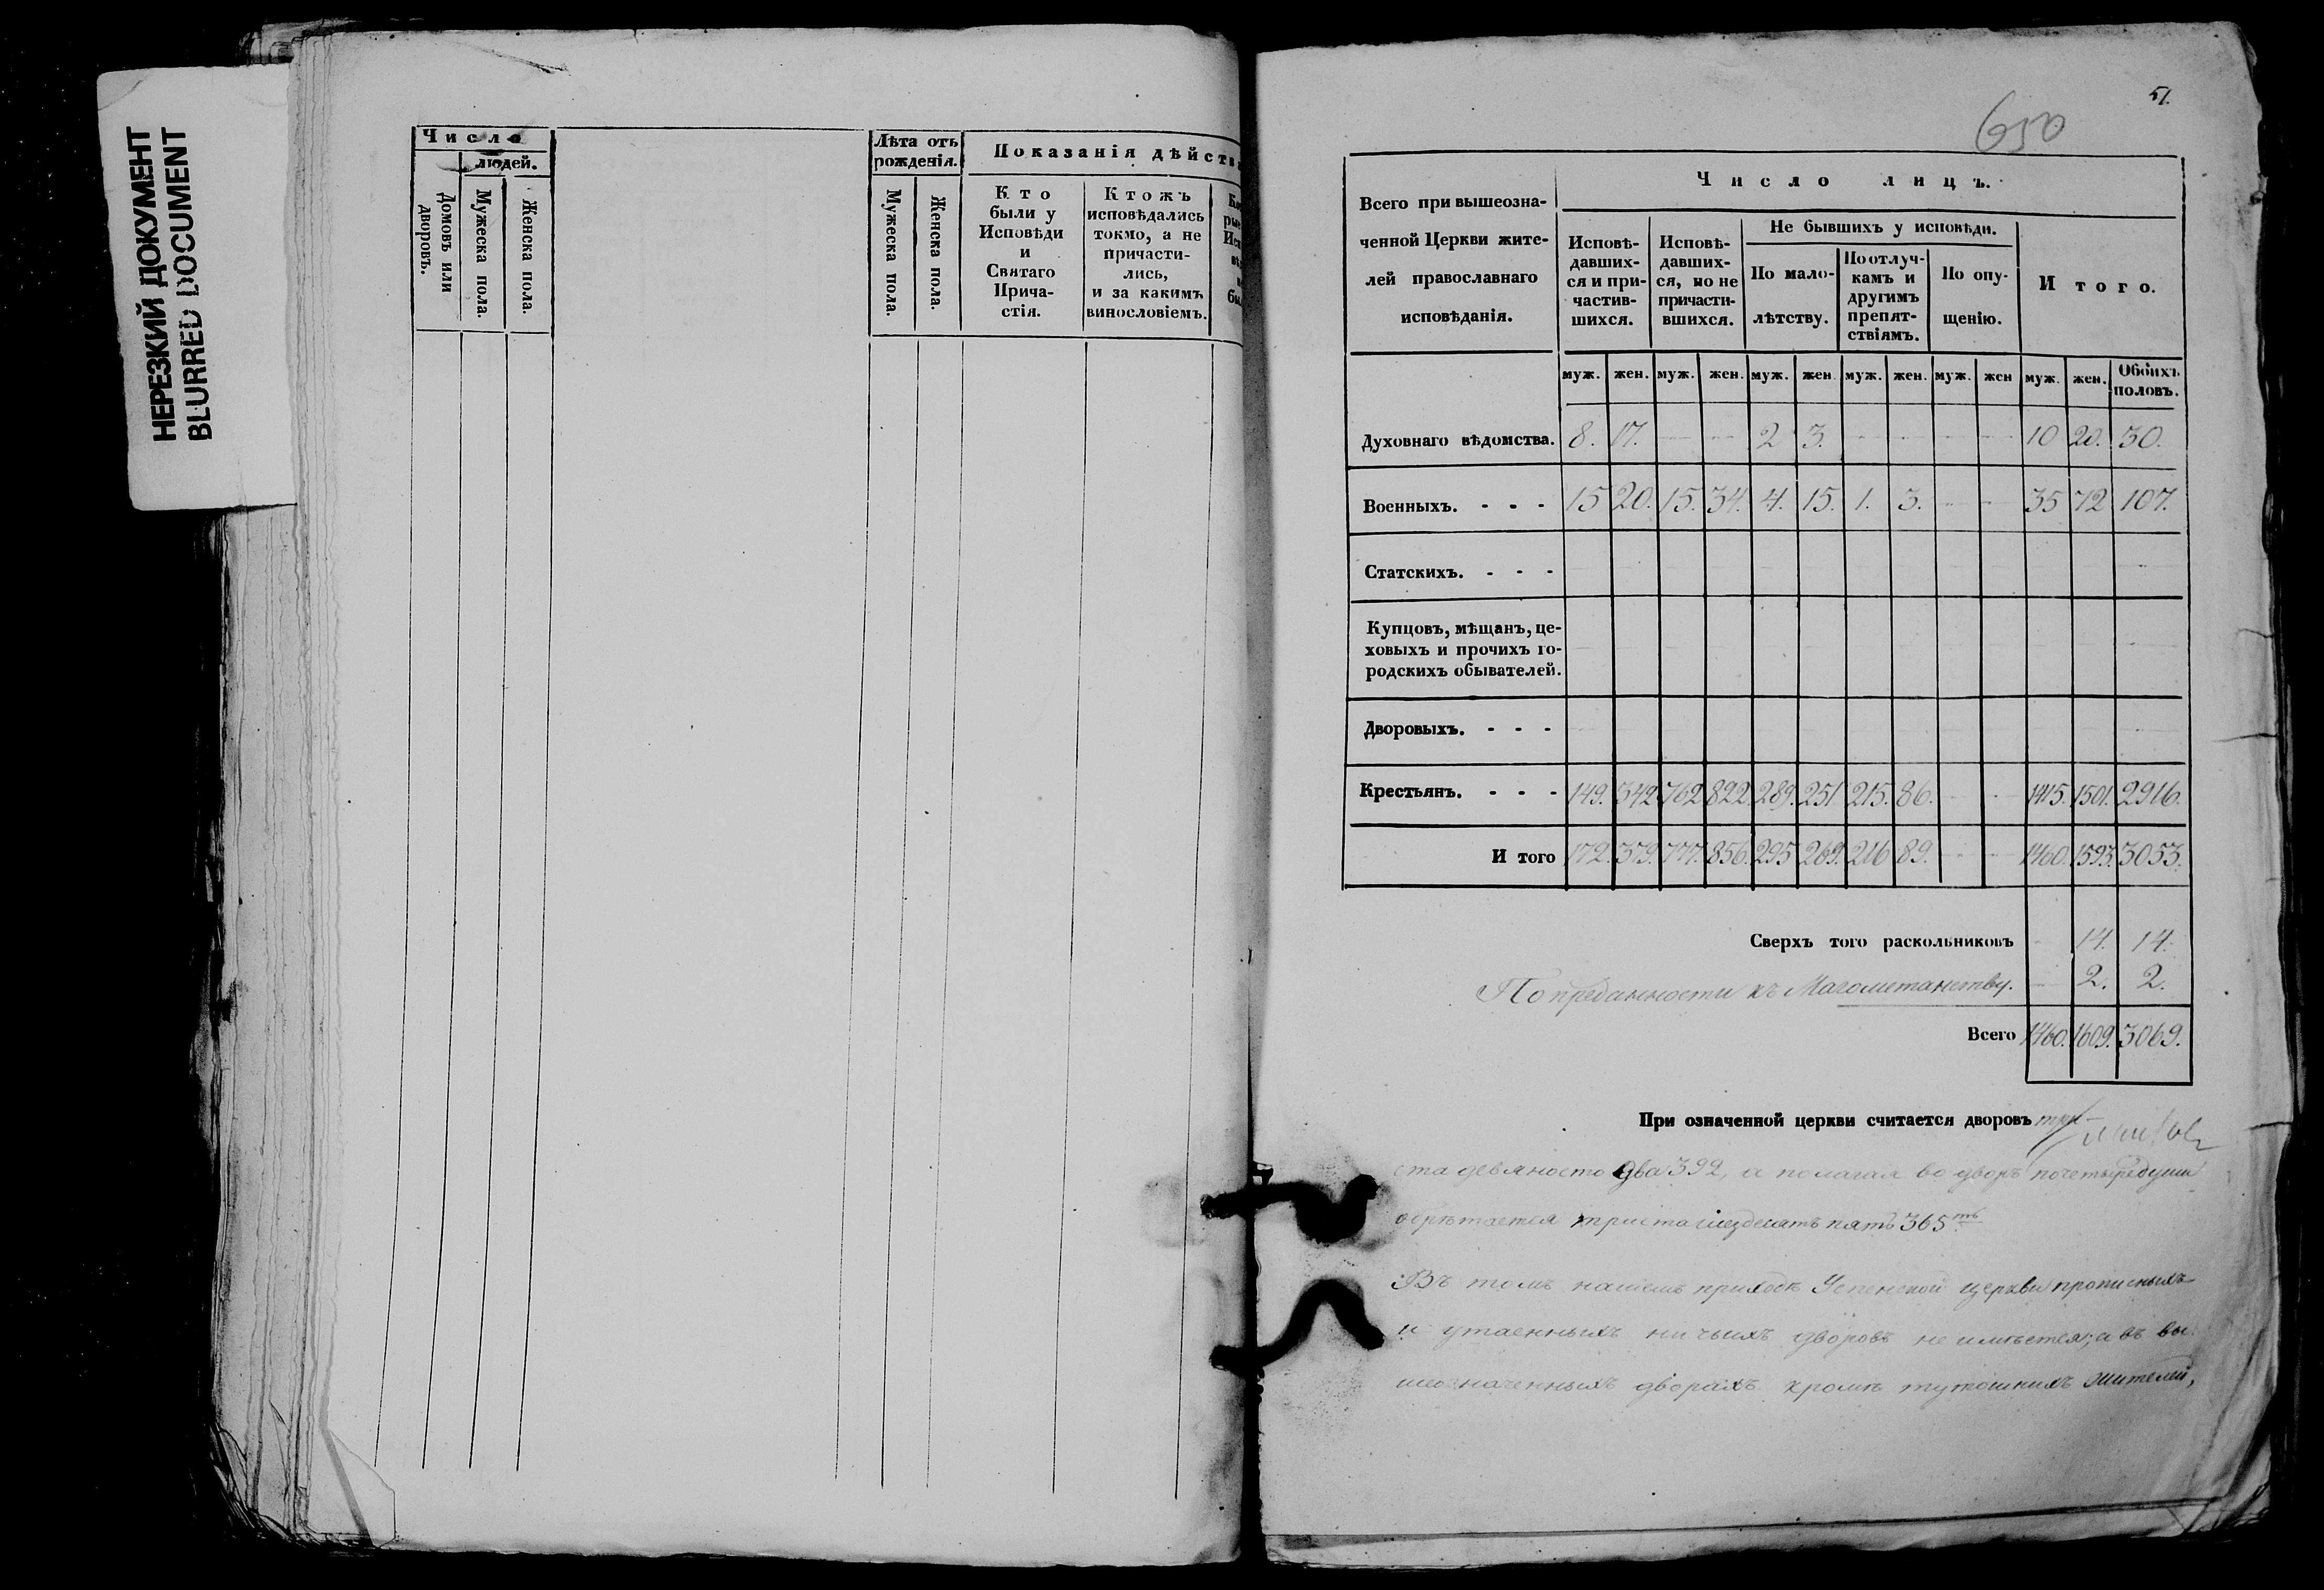 НЕРЕЗКИЙ ДОКУМЕНТ
BLURRED DOCUMENT
Число
людей.
Домовъ или дворовъ.
Мужеска пола.
Женска пола.
Лѣта отъ рожденія.
Мужеска пола.
Женска пола.
Показанія дѣйств
Кто
были у
Исповѣди
и
Святаго
Прича-
стія.
Ктожъ
исповѣдались
токмо, а не
причасти-
лись,
и за какимъ
винословіемъ.
51.
650
Всего при вышеозна-
ченной Церкви жите-
лей православнаго
исповѣданія.
Число лицъ.
Исповѣ-
давших-
ся и при-
частив-
шихся.
Исповѣ-
давших-
ся, но не
причасти-
вшихся.
Не бывшихъ у исповѣди.
По мало-
лѣтству.
По отлуч-
камъ и
другимъ
препят-
ствіямъ.
По опу-
щенію.
Итого.
муж. жен. муж. жен. муж. жен муж. жен. муж. жен муж. жен. Обоихъ половъ.
Духовнаго вѣдомства. 8. 17. — — 2 3. — — — — 10 20. 30.
Военныхъ. - - - 15 20. 15. 34. 4. 15. 1. 3. — — 35 72 107.
Статскихъ. - - -
Купцовъ, мѣщанъ, це-
ховыхъ и прочихъ го-
родскихъ обывателей.
Дворовыхъ. - - -
Крестьянъ. - - - 149. 342 762 822. 289. 251 215. 86. — — 1415. 1501. 2916.
И того 172. 379. 777. 856. 295 269. 216 89. — — 1460. 1593. 3053.
Сверхъ того раскольниковъ — 14. 14.
По преданности къ Магометанству. — 2. 2.
Всего 1460. 1609. 3069.
При означенной церкви считается дворовъ три-
ста девяносто два 392, а полагая во дворъ по четыре души
обрѣтается триста шездесятъ пять 365ть
Въ томъ нашемъ приходѣ Успенской церкви прописныхъ
и утаенныхъ ничьихъ дворовъ не имѣется; а въ вы
шеозначенныхъ дворахъ кромѣ тутошнихъ жителей,